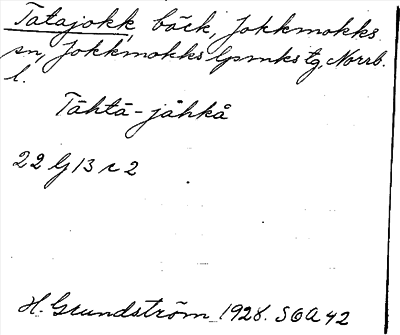 Tatajokk, bäck, Jokkmokks
sn, Jokkmokks lpmks tg, Norrb.
l.
Tāhtā-jåhkå
22 G 13 r 2
H. Grundström 1928. SOA 42